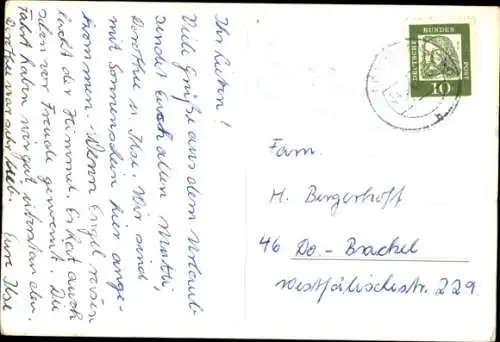 Ihr Lieben!
Viele Grüße aus dem Urlaub
sendet Euch allen Mutti,
Dorothee u. Ilse. Wir sind
mit Sonnenschein hier ange-
kommen. Wenn Engel reisen
lacht der Himmel. Er hat auch
schon vor Freude geweint. Die
Fahrt haben wir gut überstanden.
Dorothee war sehr lieb. Eure Ilse
DEUTSCHE
BUNDES
POST
10
Fam.
H. Bergerhoff
46 Do-Brackel
Westfälischestr. 229.